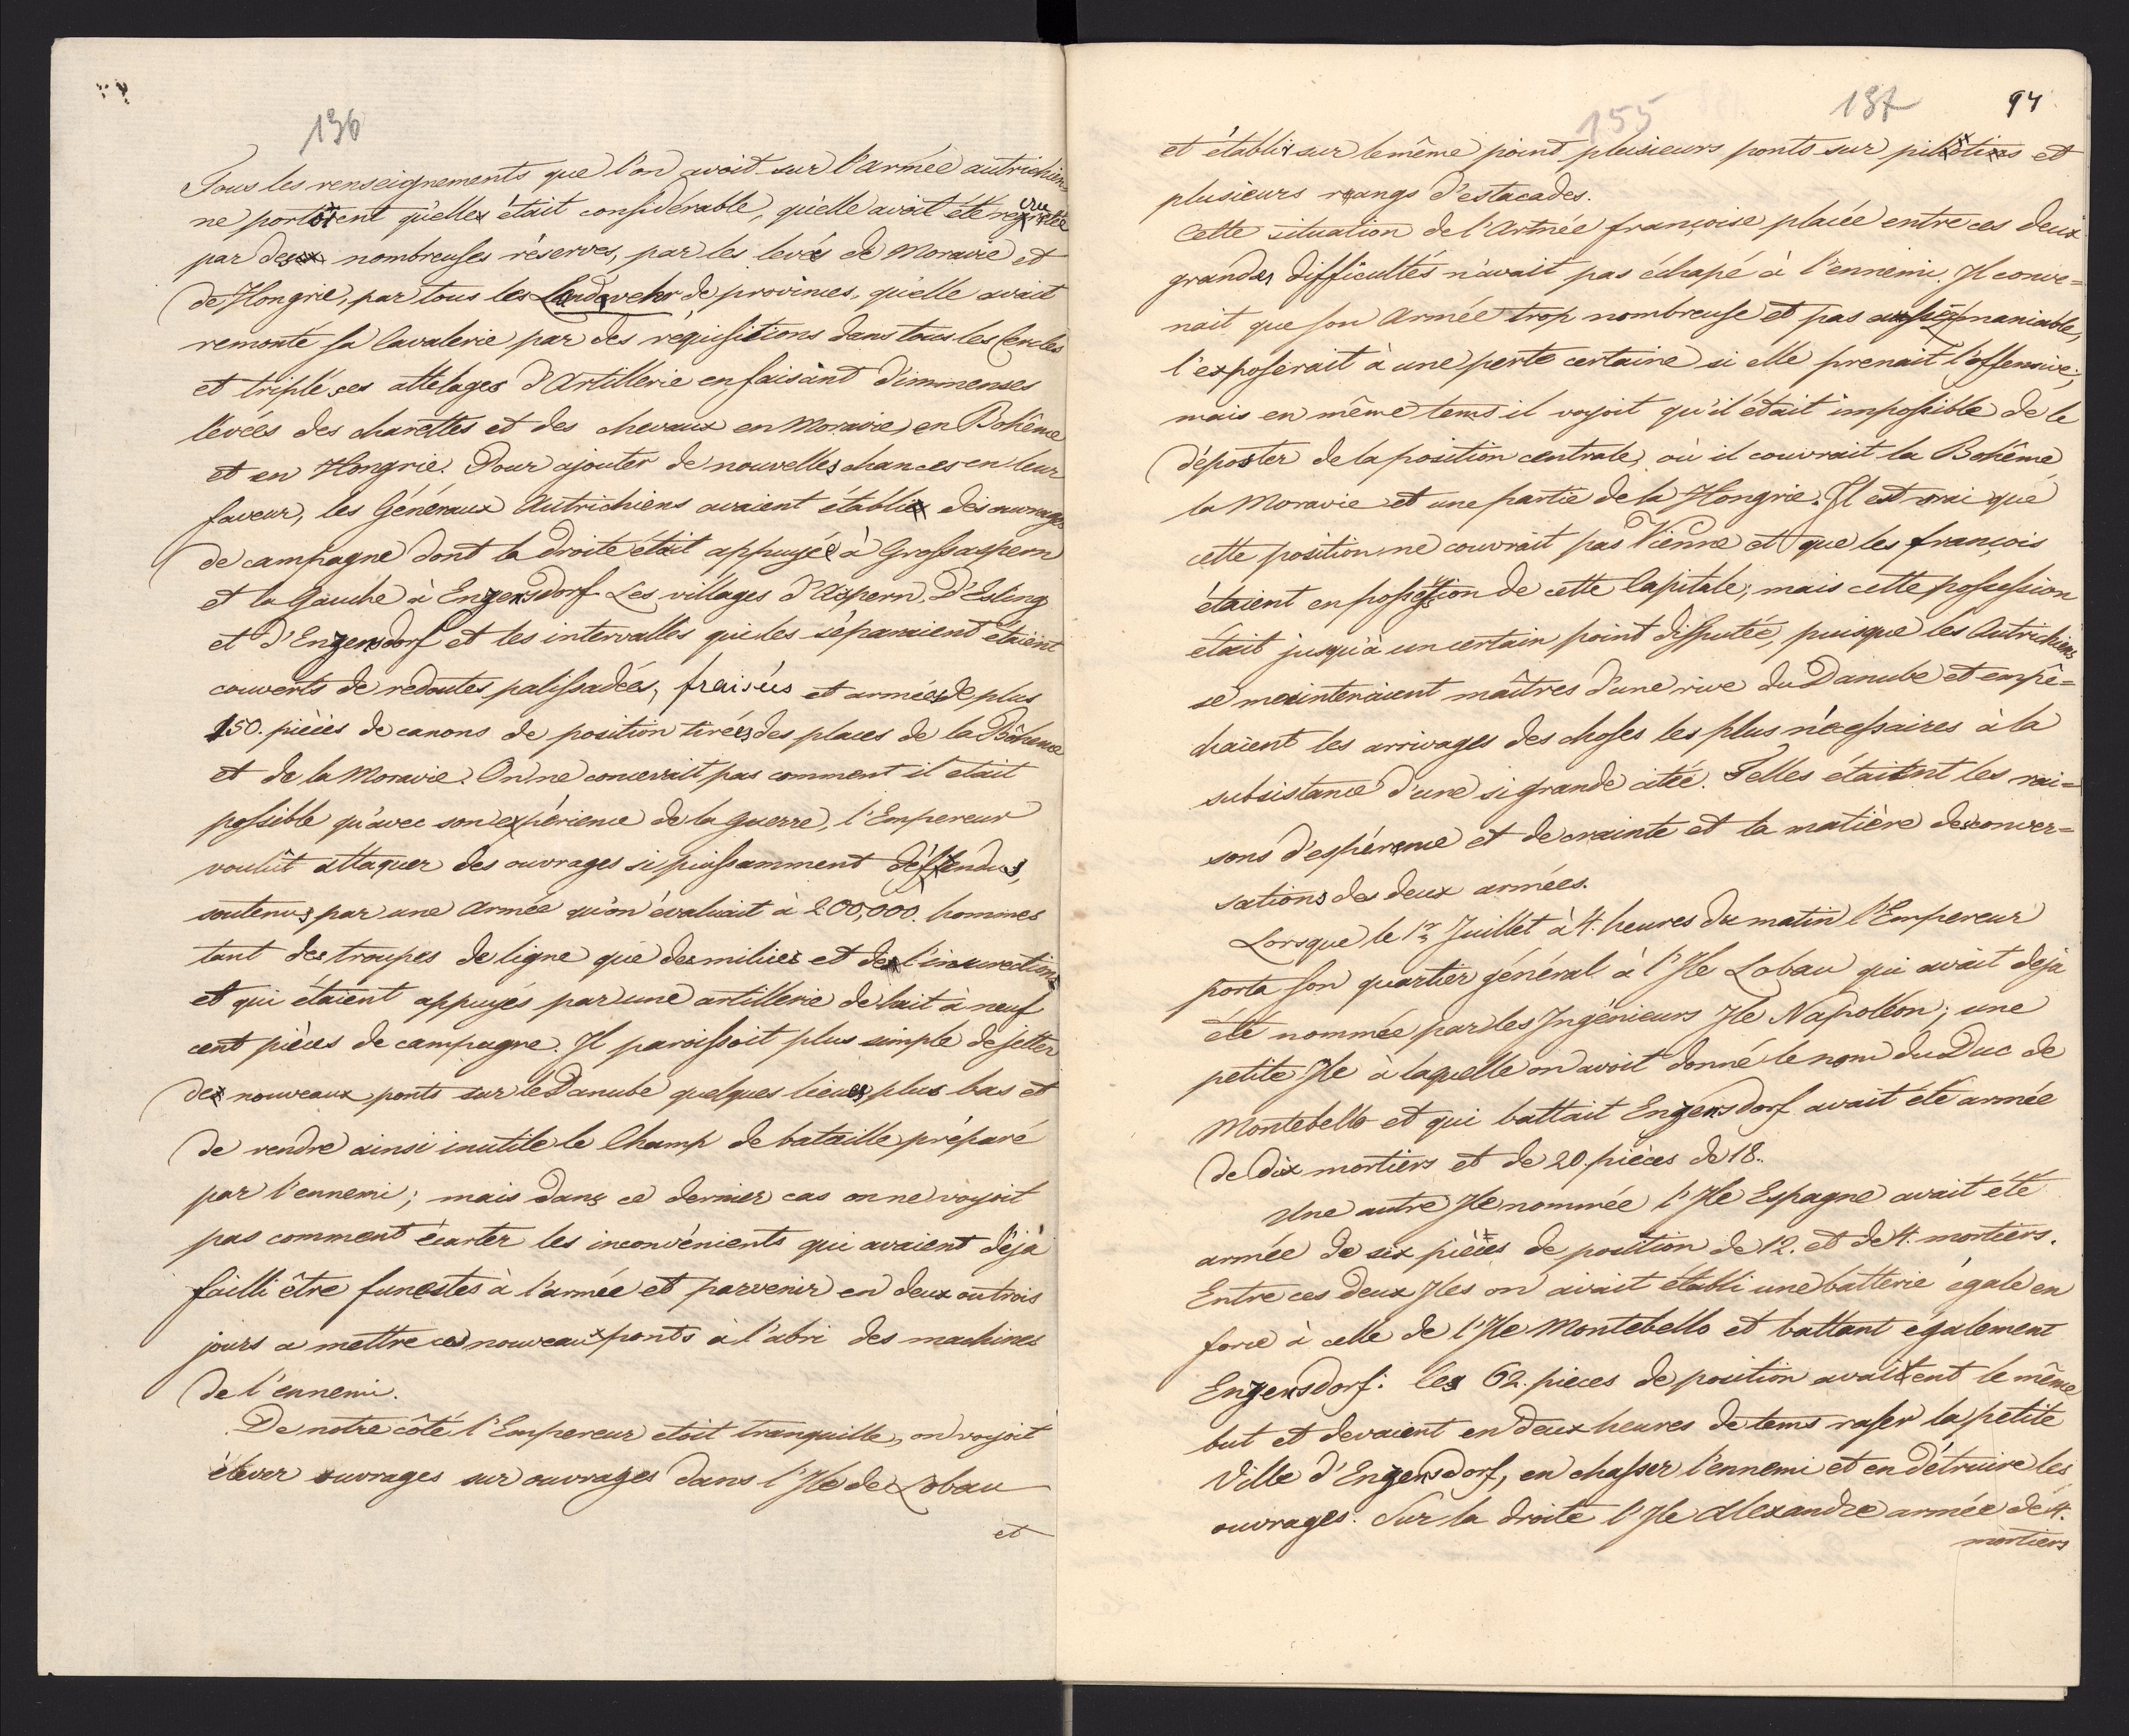 136
Tous les renseignements que l'on avoit sur l'armée autrichien-
ne portoient qu'elle était considérable, qu'elle avoit été recrutée
par des nombreuses réserves, par les levés de Moravie et
de Hongrie, par tous les Landwehr de provinces, qu'elle avait
remonté sa Cavalerie par des réquisitions dans tous les Cercles
et triplé ses attelages d'Artillerie en faisant d'immenses
levées des charettes et des chevaux en Moravie, en Bohême
et en Hongrie. Pour ajouter de nouvelles chances en leur
faveur, les Généraux Autrichiens avaient établi des ouvrages
de campagne dont la droite était appuyée à Grossaspern
et la Gauche à Enzersdorf. Les villages d'Aspern, D'Esling
et d'Enzersdorf et les intervalles qui les séparaient étaient
couverts de redoutes palissadées, fraisées et armées de plus
150. pièces de canons de position tirées des places de la Bôheme
et de la Moravie. On ne concevait pas comment il etait
possible qu'avec son expérience de la guerre, l'Empereur
voulût attaquer des ouvrages si puissamment deffendus,
soutenus par une Armée qu'on évaluait à 200,000. hommes
tant des troupes de ligne que des milices et de l'insurection
et qui étaient appuyés par une artillerie de huit à neuf
cent pièces de campagne. Il paroissoit plus simple de jetter
de nouveaux ponts sur le Danube quelques lieues plus bas et
de rendre ainsi inutile le Champ de bataille préparé
par l'ennemi; mais dans ce dernier cas on ne voyoit
pas comment écarter les inconvénients qui avaient déjà
failli être funestes à l'armée et parvenir en deux ou trois
jours a mettre ces nouveaux ponts à l'abri des machines
de l'ennemi.
De notre côté l'Empereur etoit tranquille, on voyoit
élever ouvrages sur ouvrages dans l'Ile de Lobau
et
155 137 94
et établir sur le même point plusieurs ponts sur pilotis et
plusieurs rangs d'estacades.
Cette situation de l'Armée françoise placée entre ces deux
grandes difficultés n'avait pas échapé à l'ennemi. Il conve=
nait que son Armée trop nombreuse et pas assez maniable,
l'exposerait à une perte certaine si elle prenait l'offensive;
mais en même tems il voyoit qu'il était impossible de le
déposter de la position centrale, où il couvrait la Bohême
la Moravie et une partie de la Hongrie. Il est vrai que
cette position ne couvrait pas Vienne et que les françois
étaient en possession de cette Capitale; mais cette possession
était jusqu'à un certain point disputée, puisque les Autrichiens
se maintenaient maîtres d'une rive du Danube et empê=
chaient les arrivages des choses les plus nécessaires à la
subsistance d'une si grande citée. Telles étaient les rai=
sons d'espérance et de crainte et la matière des conver=
sations des deux armées.
Lorsque le 1er Juillet à 4. heures du matin l'Empereur
porta son quartier général à l'Ile Lobau qui avait déja
été nommée par les Ingénieurs Ile Napoléon; une
petite Ile à laquelle on avoit donné le nom du Duc de
Montebello et qui battait Enzersdorf avait été armée
de dix mortiers et de 20. pièces de 18.
Une autre Ile nommée l'Ile Espagne avait été
armée de six pièces de position de 12. et de 4. mortiers.
Entre ces deux Iles on avait établi une batterie égale en
force à celle de l'Ile Montebello et battant également
Enzersdorf: les 62. pieces de position avaient le même
but et devaient en deux heures de tems raser la petite
Ville d'Enzersdorf, en chasser l'ennemi et en détruire les
ouvrages. Sur la droite l'Ile Alexandre armée de 4.
mortiers